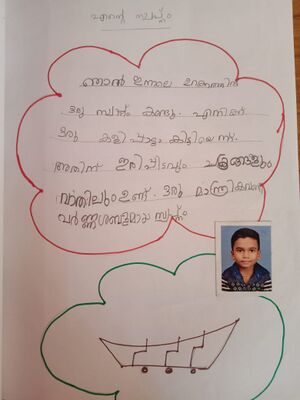 എന്റെ സ്വപ്നം
ഞാൻ ഇന്നലെ ഉറക്കത്തിൽ
ഒരു സ്വപ്നം കണ്ടു. എനിക്ക്
ഒരു കളിപ്പാട്ടം കിട്ടിയെന്ന്.
അതിന് ഇരിപ്പിടവും ചക്രങ്ങളും
വാതിലും ഉണ്ട്. ഒരു മാന്ത്രിക
വർണ്ണശബളമായ സ്വപ്നം